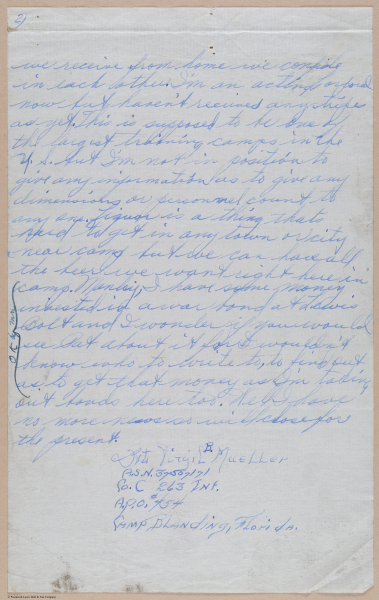 2)
we receive from home we confide
in each other. I'm an acting corporal
now but haven't received any stripes
as yet. This is supposed to be one of
the largest training camps in the
U.S. but I'm not in position to
give any information as to give any
dimensions or personnel count, to
any one. Liquor is a thing thats
hard to get in any town or city
near camp but we can have all
the beer we want right here in
camp. I have some money
invested in a war bond at Lewis
Bolt and I wonder if you would
see Gat about it for I wouldn't
know who to write to, to find out
as to get that money as I'm taking
out bonds here too. Well I have
no more news so will close for
the present.
Pvt. Virgil Mueller
A.S.N. 37557171
Co. C 263 Inf.
A.P.O. #454
Camp Blanding, Florida.